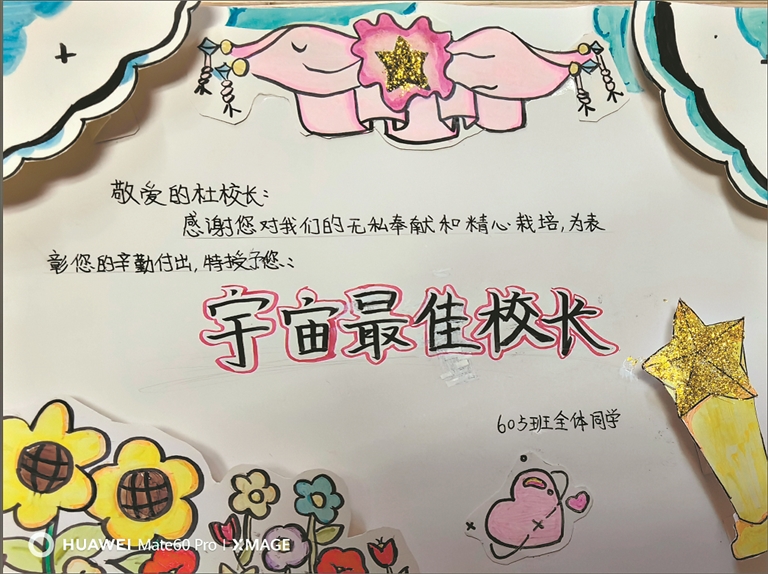 敬爱的杜校长:
感谢您对我们的无私奉献和精心栽培,为表
彰您的辛勤付出,特授予您:
宇宙最佳校长
605班全体同学
HUAWEI Mate60 Pro | XMAGE